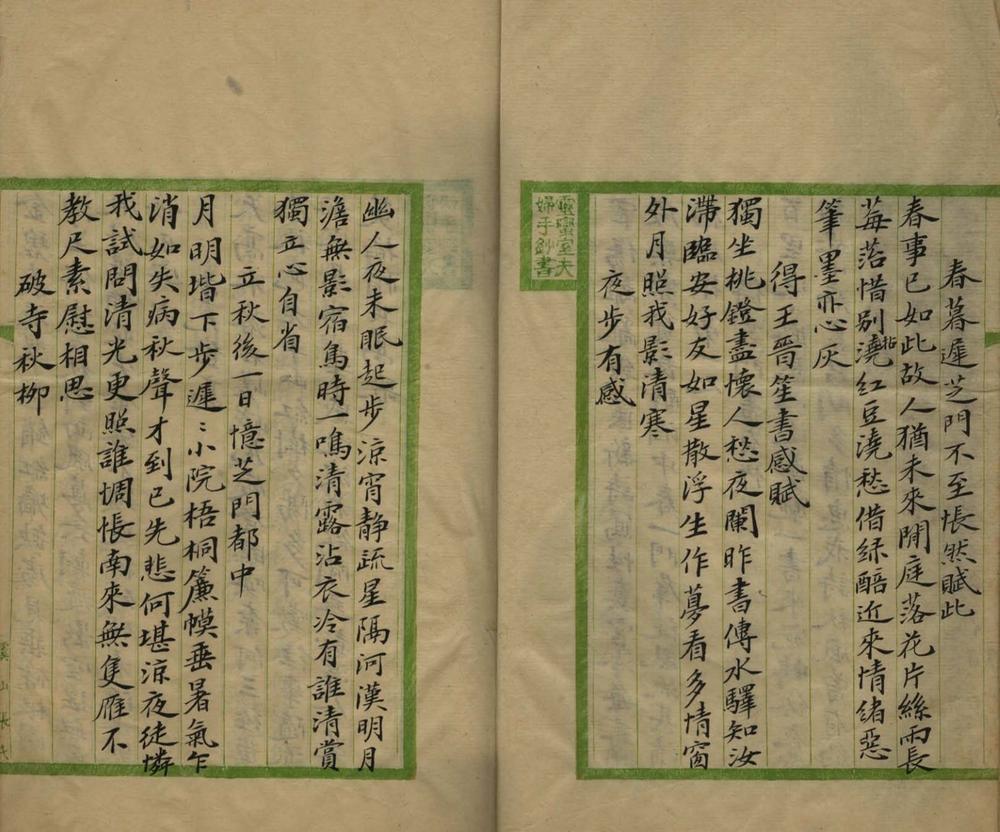 春暮遲芝門不至悵然賦此
春事已如此故人猶未來閒庭落花片絲雨長
莓苔惜別拈紅豆澆愁借綠醅近來情緒惡
筆墨亦心灰
得王晉笙書感賦
獨坐桃鐙盡懷人愁夜闌昨書傳水驛知汝
滯臨安好友如星散浮生作夢看多情窗
外月照我影清寒
夜步有感
幽人夜未眠起步涼宵靜疏星隔河漢明月
澹無影宿鳥時一鳴清露沾衣冷有誰清賞
獨立心自省
立秋後一日憶芝門都中
月明堦下步遲〻小院梧桐簾幙垂暑氣乍
消如失病秋聲才到已先悲何堪涼夜徒憐
我試問清光更照誰惆悵南來無隻雁不
教尺素慰相思
破寺秋柳
室夫
婦手鈔書